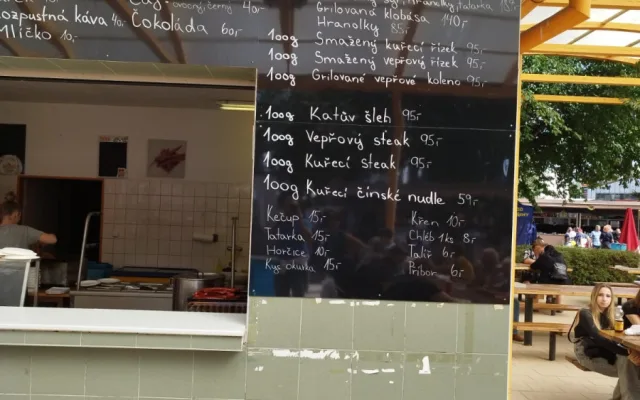 Čaj - ovocný, černý 40,-
Rozpustná káva 40,- Čokoláda 60,-
Mlíčko 10,-
Grilovaná klobása 140,-
Hranolky 85,-
100g Smažený kuřecí řízek 95,-
100g Smažený vepřový řízek 95,-
100g Grilované vepřové koleno 95,-
100g Katův šleh 95,-
100g Vepřový steak 95,-
100g Kuřecí steak 95,-
100g Kuřecí čínské nudle 59,-
Kečup 15,- Křen 10,-
Tatarka 15,- Chléb 1ks 8,-
Hořčice 10,- Talíř 6,-
Kys. okurka 15,- Příbor 6,-